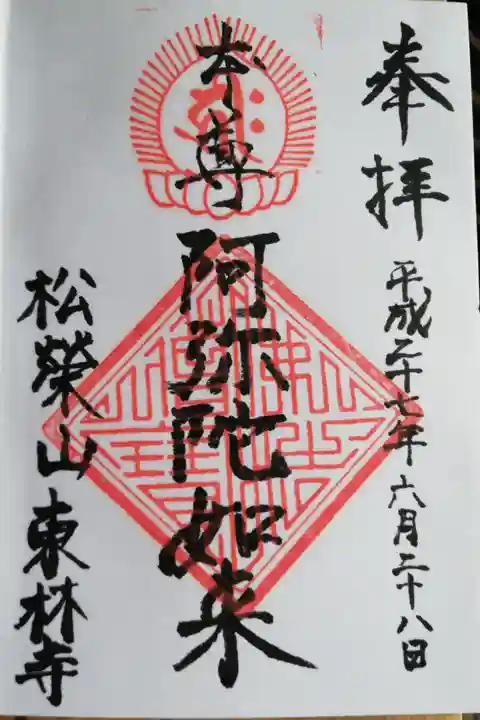 奉拝
平成二十七年六月二十八日
本尊
阿弥陀如来
松榮山東林寺